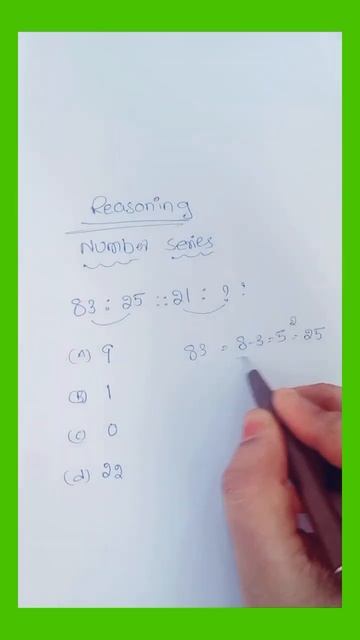 Reasoning
Number Series
83 : 25 :: 21 : ? :
(A) 9
(B) 1
(C) 0
(d) 22
83 = 8-3=5²=25